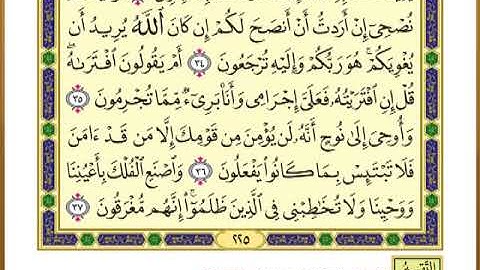 نُصْحِىٓ إِنْ أَرَدتُّ أَنْ أَنصَحَ لَكُمْ إِن كَانَ ٱللَّهُ يُرِيدُ أَن
يُغْوِيَكُمْ ۚ هُوَ رَبُّكُمْ وَإِلَيْهِ تُرْجَعُونَ ٣٤ أَمْ يَقُولُونَ ٱفْتَرَىٰهُ ۖ
قُلْ إِنِ ٱفْتَرَيْتُهُۥ فَعَلَىَّ إِجْرَامِى وَأَنَا۠ بَرِىٓءٌ مِّمَّا تُجْرِمُونَ ٣٥
وَأُوحِىَ إِلَىٰ نُوحٍ أَنَّهُۥ لَن يُؤْمِنَ مِن قَوْمِكَ إِلَّا مَن قَدْ ءَامَنَ
فَلَا تَبْتَئِسْ بِمَا كَانُوا۟ يَفْعَلُونَ ٣٦ وَٱصْنَعِ ٱلْفُلْكَ بِأَعْيُنِنَا
وَوَحْيِنَا وَلَا تُخَـٰطِبْنِى فِى ٱلَّذِينَ ظَلَمُوٓا۟ ۚ إِنَّهُم مُّغْرَقُونَ ٣٧
٢٢٥